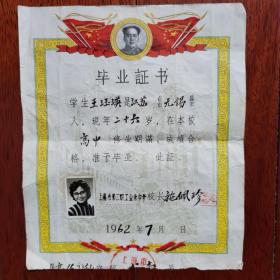 毕业証书
学生王珏瑛是江苏省无锡县
人，现年二十六岁，在本校
高中修业期满，成绩合
格，准予毕业。此証
上海市第二职工业余中学校长施佩珍
1962年7月 日